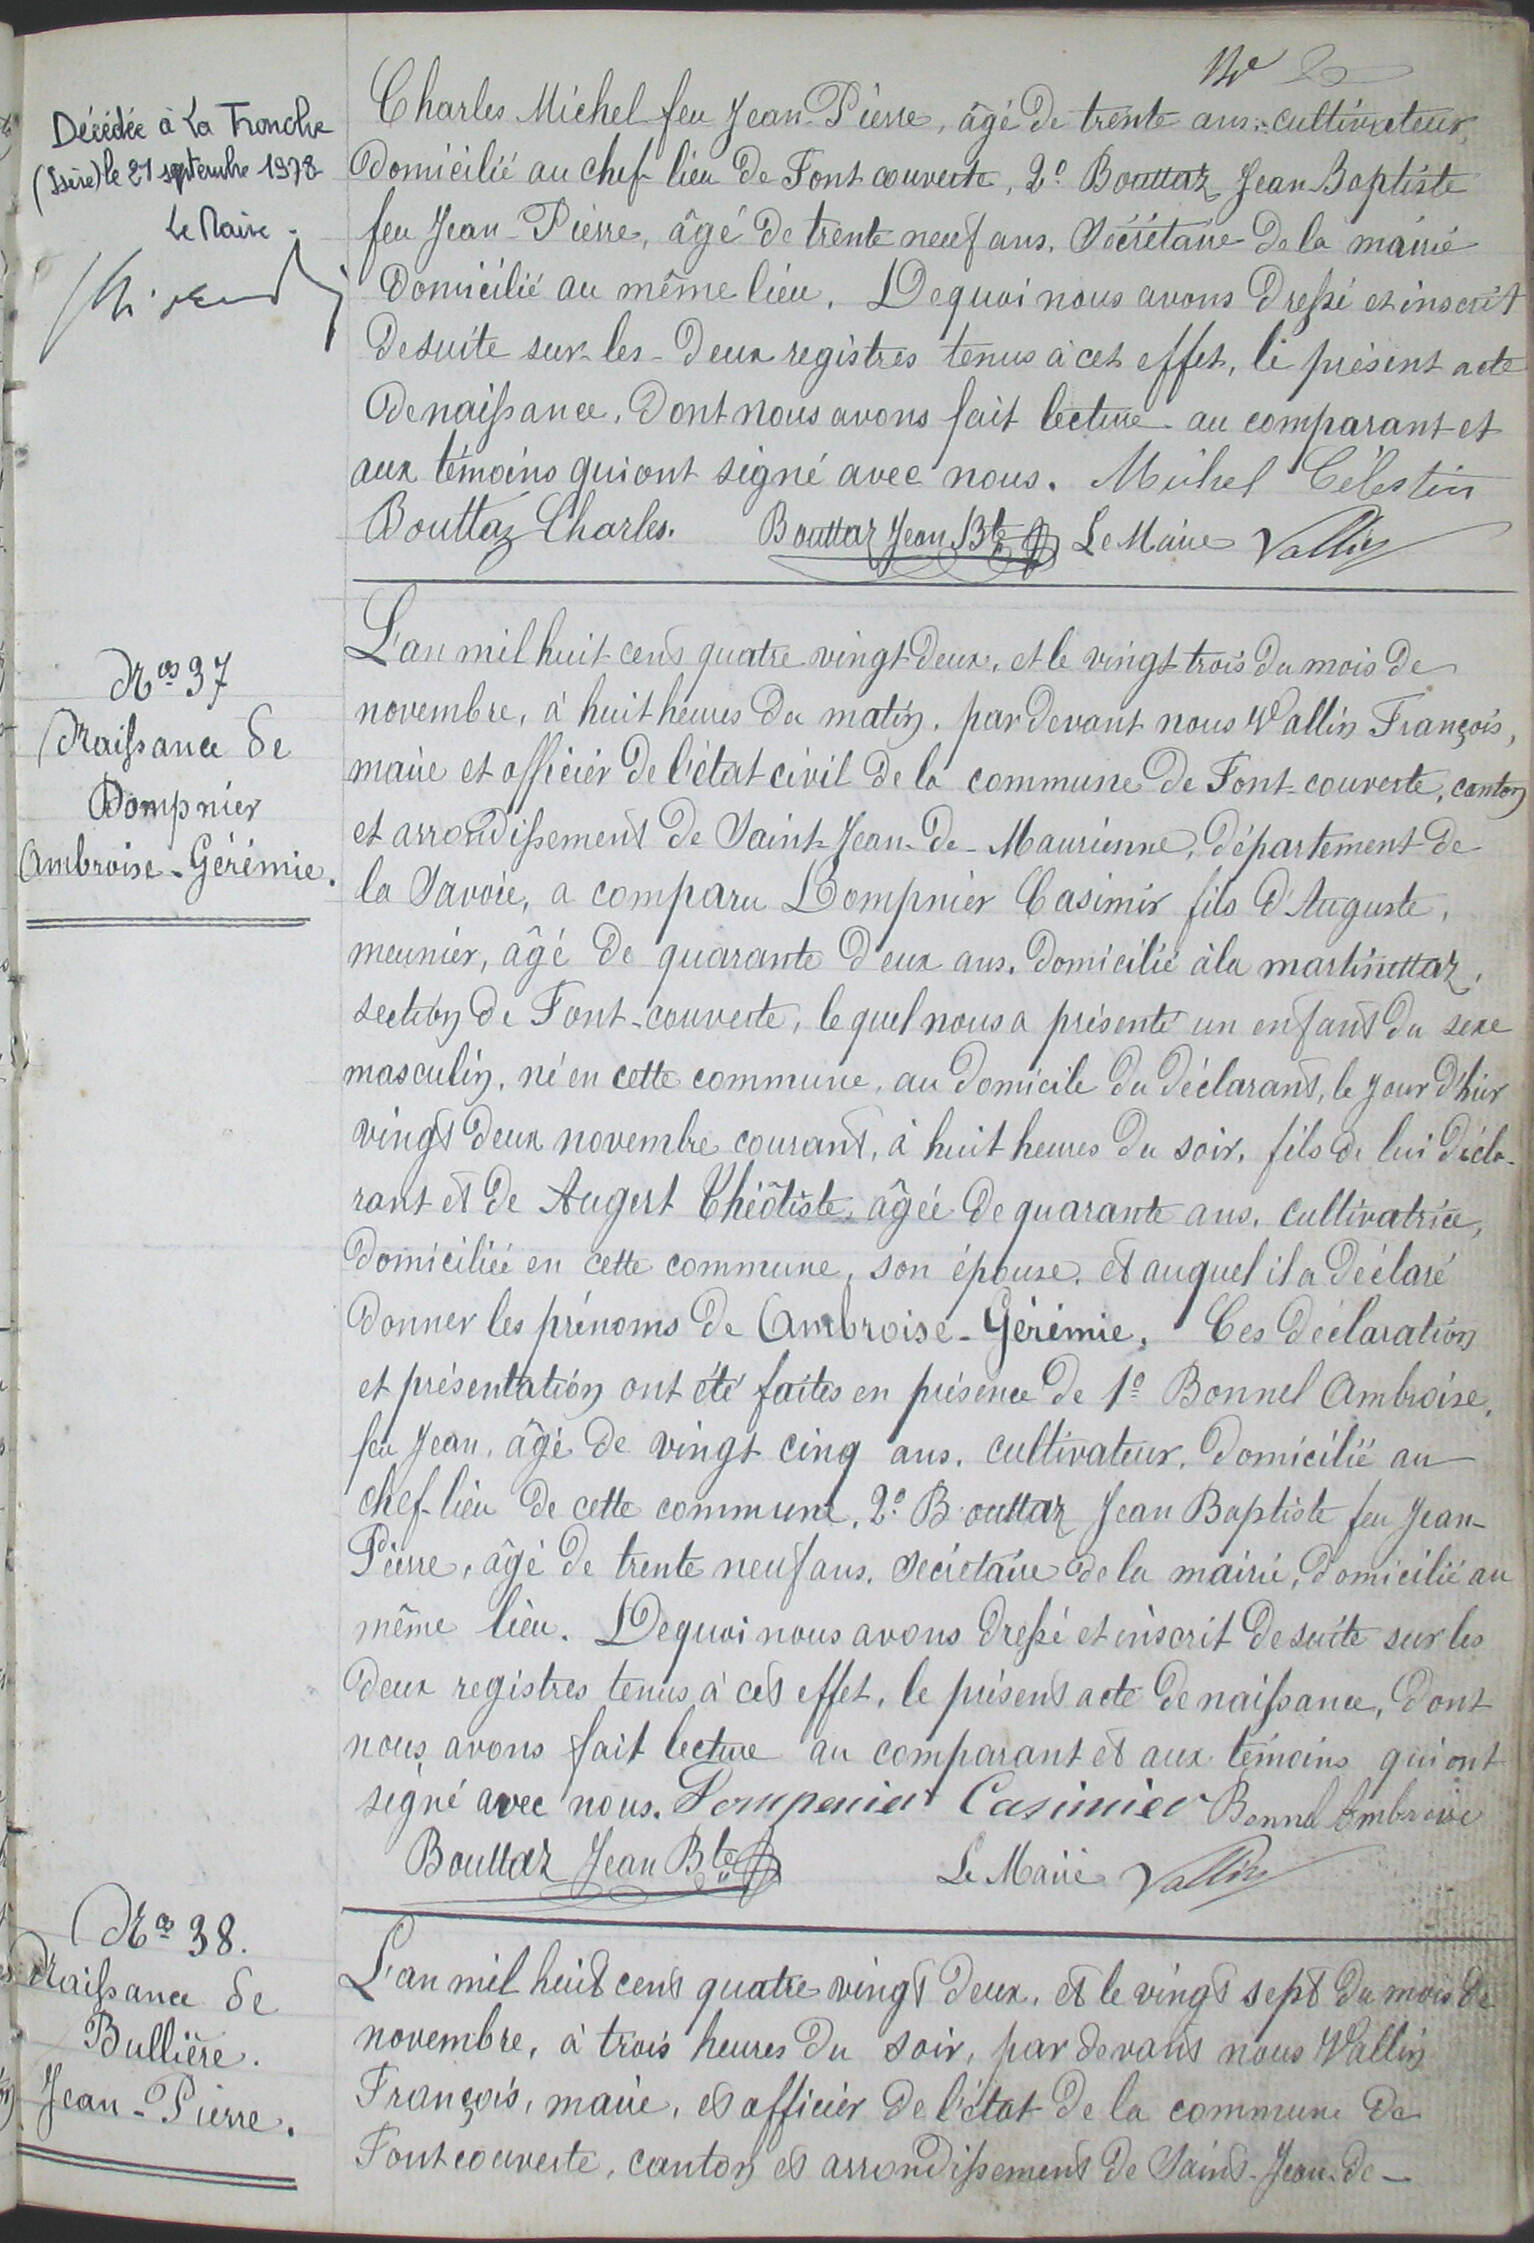 Décédée à La Tronche
(Isère) le 21 septembre 1978
Le Maire
Charles Michel feu Jean-Pierre, âgé de trente ans, cultivateur,
domicilié au chef-lieu de Font couverte, 2º Bouttaz Jean Baptiste
feu Jean-Pierre, âgé de trente neuf ans, Sécrétaire de la mairie
domicilié au même lieu. De quoi nous avons dressé et inscrit
de suite sur les deux registres tenus à cet effet, le présent acte
de naissance, dont nous avons fait lecture au comparant et
aux témoins qui ont signé avec nous. Michel Célestin
Bouttaz Charles. Bouttaz Jean Bte Le Maire Vallin
Nos 37
Naissance de
Dompnier
Ambroise-Gérémie.
L'an mil huit cent quatre vingt deux, et le vingt trois du mois de
novembre, à huit heures du matin, par devant nous Vallin François,
maire et officier de l'état civil de la commune de Font-couverte, canton
et arrondissement de Saint-Jean-de-Maurienne, département de
la Savoie, a comparu Dompnier Casimir fils d'Auguste,
meunier, âgé de quarante deux ans, domicilié à la martinettaz,
section de Font-couverte, le quel nous a présenté un enfant du sexe
masculin, né en cette commune, au domicile du déclarant, le jour d'hier
vingt deux novembre courant, à huit heures du soir, fils de lui décla-
rant et de Augert Théôtiste, âgée de quarante ans, cultivatrice,
domiciliée en cette commune, son épouse, et auquel il a déclaré
donner les prénoms de Ambroise-Gérémie. Ces déclaration
et présentation ont été faites en présence de 1º Bonnel Ambroise,
feu Jean, âgé de vingt cinq ans, cultivateur, domicilié au
chef-lieu de cette commune, 2º Bouttaz Jean Baptiste feu Jean-
Pierre, âgé de trente neuf ans, Sécrétaire de la mairie, domicilié au
même lieu. De quoi nous avons dressé et inscrit de suite sur les
deux registres tenus à cet effet, le présent acte de naissance, dont
nous avons fait lecture au comparant et aux témoins qui ont
signé avec nous. Dompnier Casimier Bonnel Ambroise
Bouttaz Jean Bte Le Maire Vallin
Nos 38.
Naissance de
Bullière.
Jean-Pierre.
L'an mil huit cent quatre vingt deux, et le vingt sept du mois de
novembre, à trois heures du soir, par devant nous Vallin
François, maire, et officier de l'état de la commune de
Font couverte, canton et arrondissement de Saint-Jean-de-